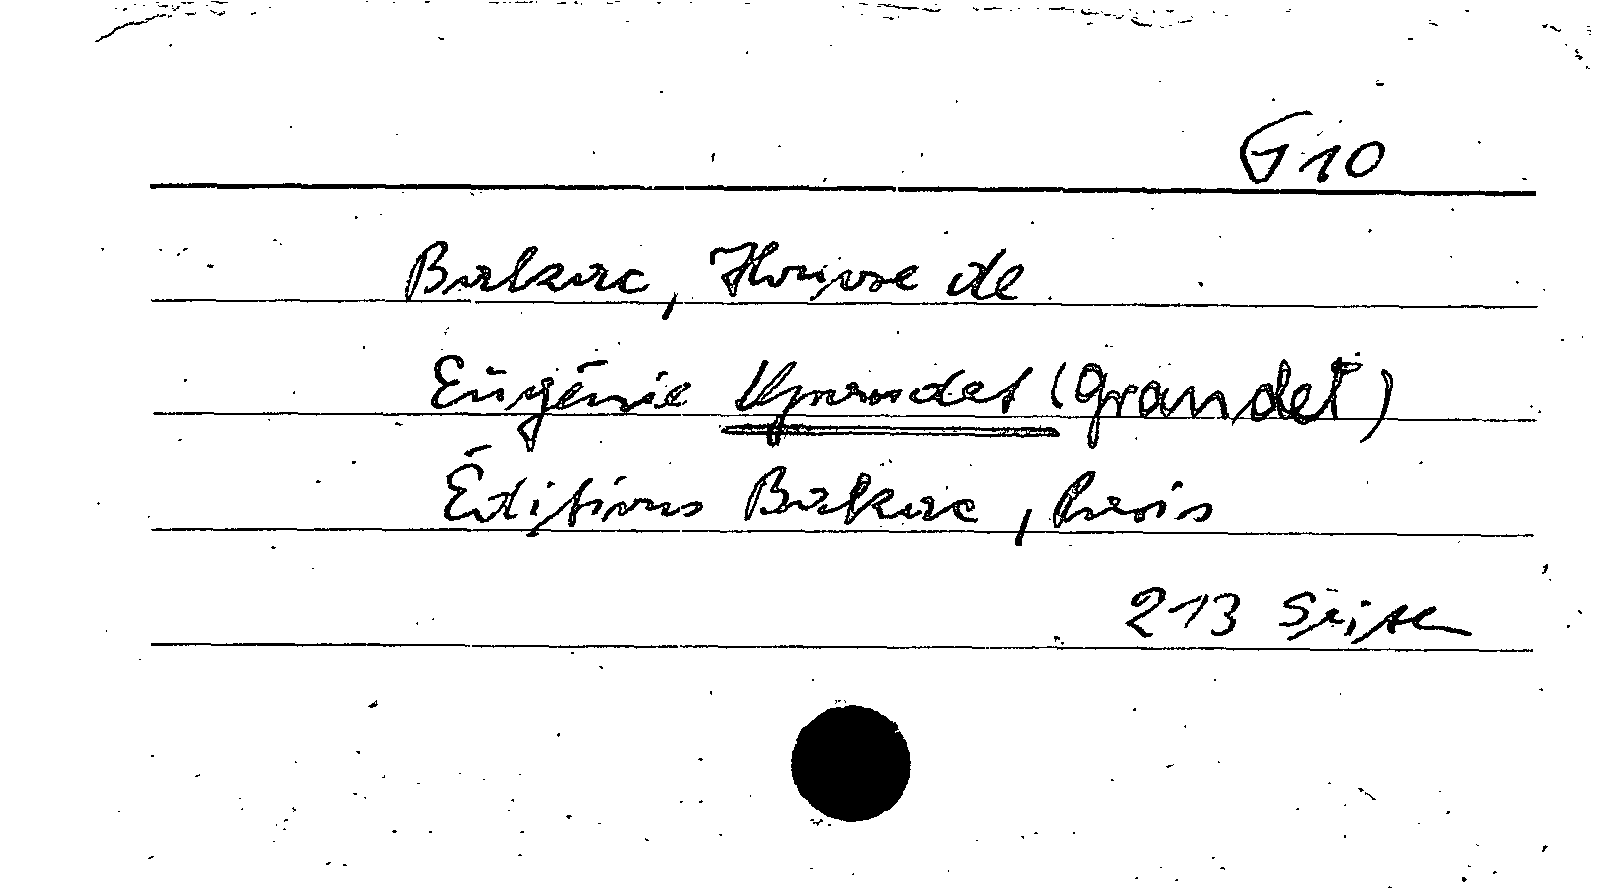 G 10
Balzac, Honoré de
Eugénie Grandet (Grandet)
Éditions Balzac, Paris
213 Seiten